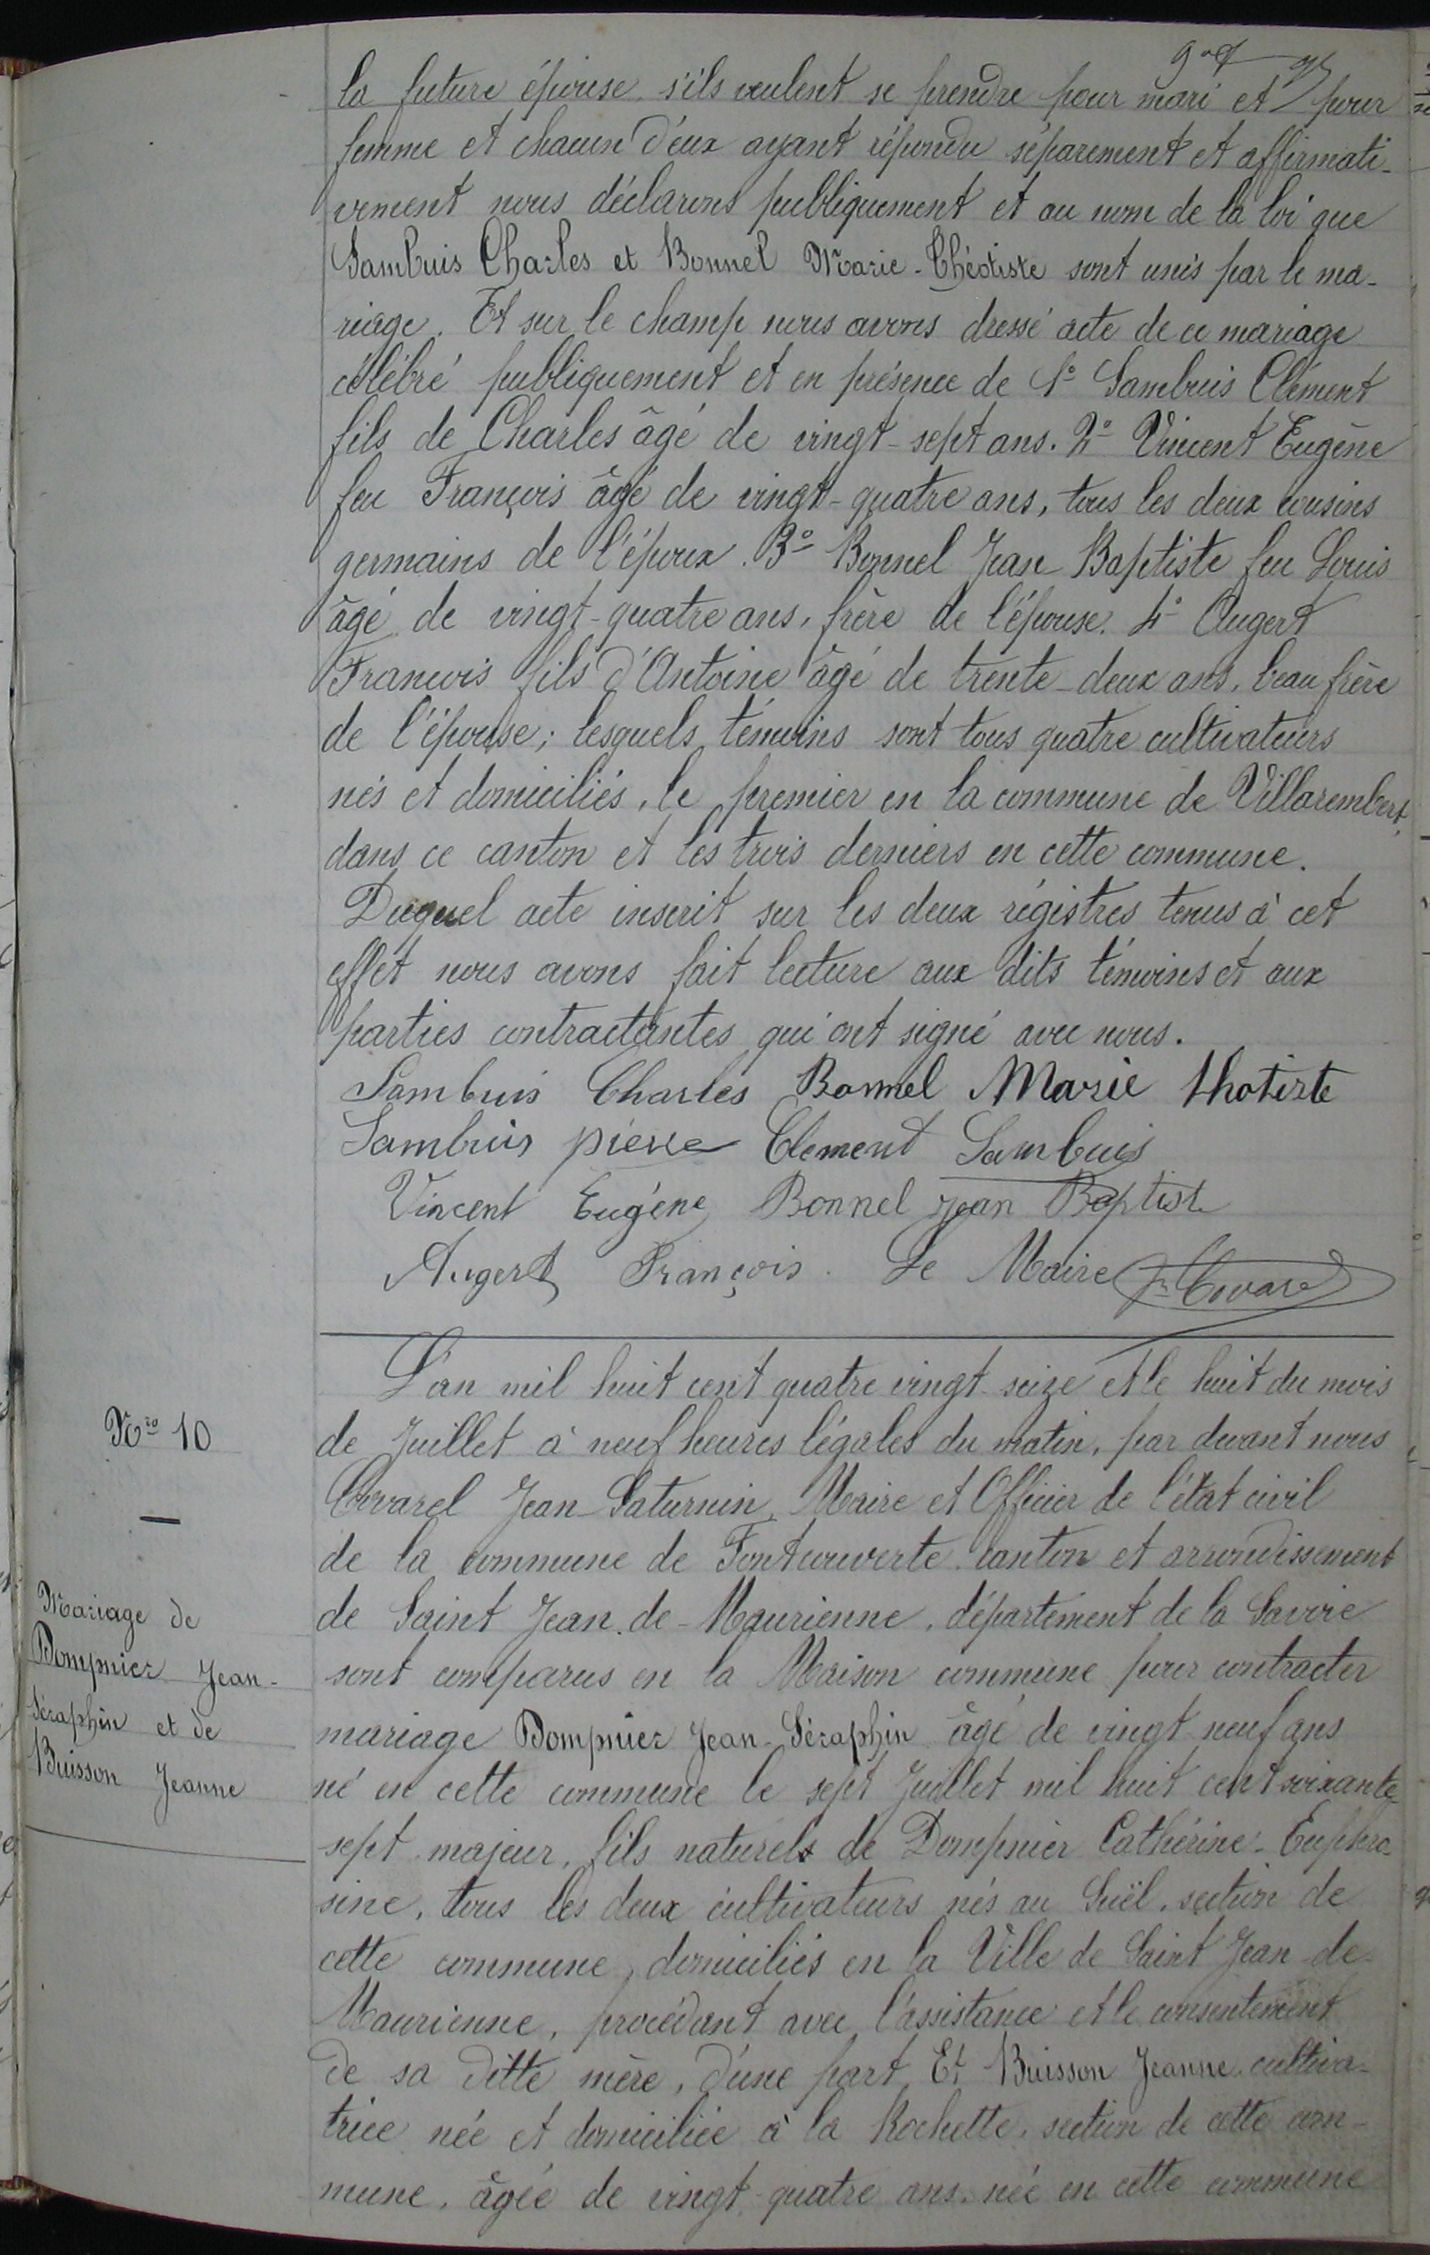 la future épouse s'ils veulent se prendre pour mari et pour
femme et chacun d'eux ayant répondu séparement et affirmati-
vement nous déclarons publiquement et au nom de la loi que
Sambuis Charles et Bonnel Marie-Théotiste sont unis par le ma-
riage. Et sur le champ nous avons dressé acte de ce mariage
célébré publiquement et en présence de 1° Sambuis Clément
fils de Charles âgé de vingt-sept ans. 2° Vincent Eugène
feu François âgé de vingt-quatre ans, tous les deux cousins
germains de l'époux. 3° Bonnel Jean Baptiste feu Louis
âgé de vingt-quatre ans, frère de l'épouse. 4° Augert
François fils d'Antoine âgé de trente-deux ans, beau frère
de l'épouse; lesquels témoins sont tous quatre cultivateurs
nés et domiciliés, le premier en la commune de Villarembert,
dans ce canton et les trois derniers en cette commune.
Duquel acte inscrit sur les deux régistres tenus à cet
effet nous avons fait lecture aux dits témoins et aux
parties contractantes qui ont signé avec nous.
Sambuis Charles Bonnel Marie thotiste
Sambuis pierre Clément Sambuis
Vincent Eugène Bonnel Jean Baptiste
Augert François. Le Maire J. Covarel
L'an mil huit cent quatre vingt-seize et le huit du mois
N° 10
de Juillet à neuf heures légales du matin, par devant nous
Covarel Jean-Saturnin, Maire et Officier de l'état civil
de la commune de Fontcouverte, canton et arrondissement
de Saint Jean-de-Maurienne, département de la Savoie
Mariage de
Dompnier Jean-
Séraphin et de
Buisson Jeanne
sont comparus en la Maison commune pour contracter
mariage Dompnier Jean-Séraphin âgé de vingt-neuf ans
né en cette commune le sept Juillet mil huit cent soixante-
sept majeur, fils naturels de Dompnier Cathérine-Euphro-
sine, tous les deux cultivateurs nés au Suël, section de
cette commune, domiciliés en la Ville de Saint Jean-de-
Maurienne, procédant avec l'assistance et le consentement
de sa ditte mère, d'une part, Et Buisson Jeanne, cultiva-
trice née et domiciliée à la Rochette, section de cette com-
mune, âgée de vingt-quatre ans, née en cette commune